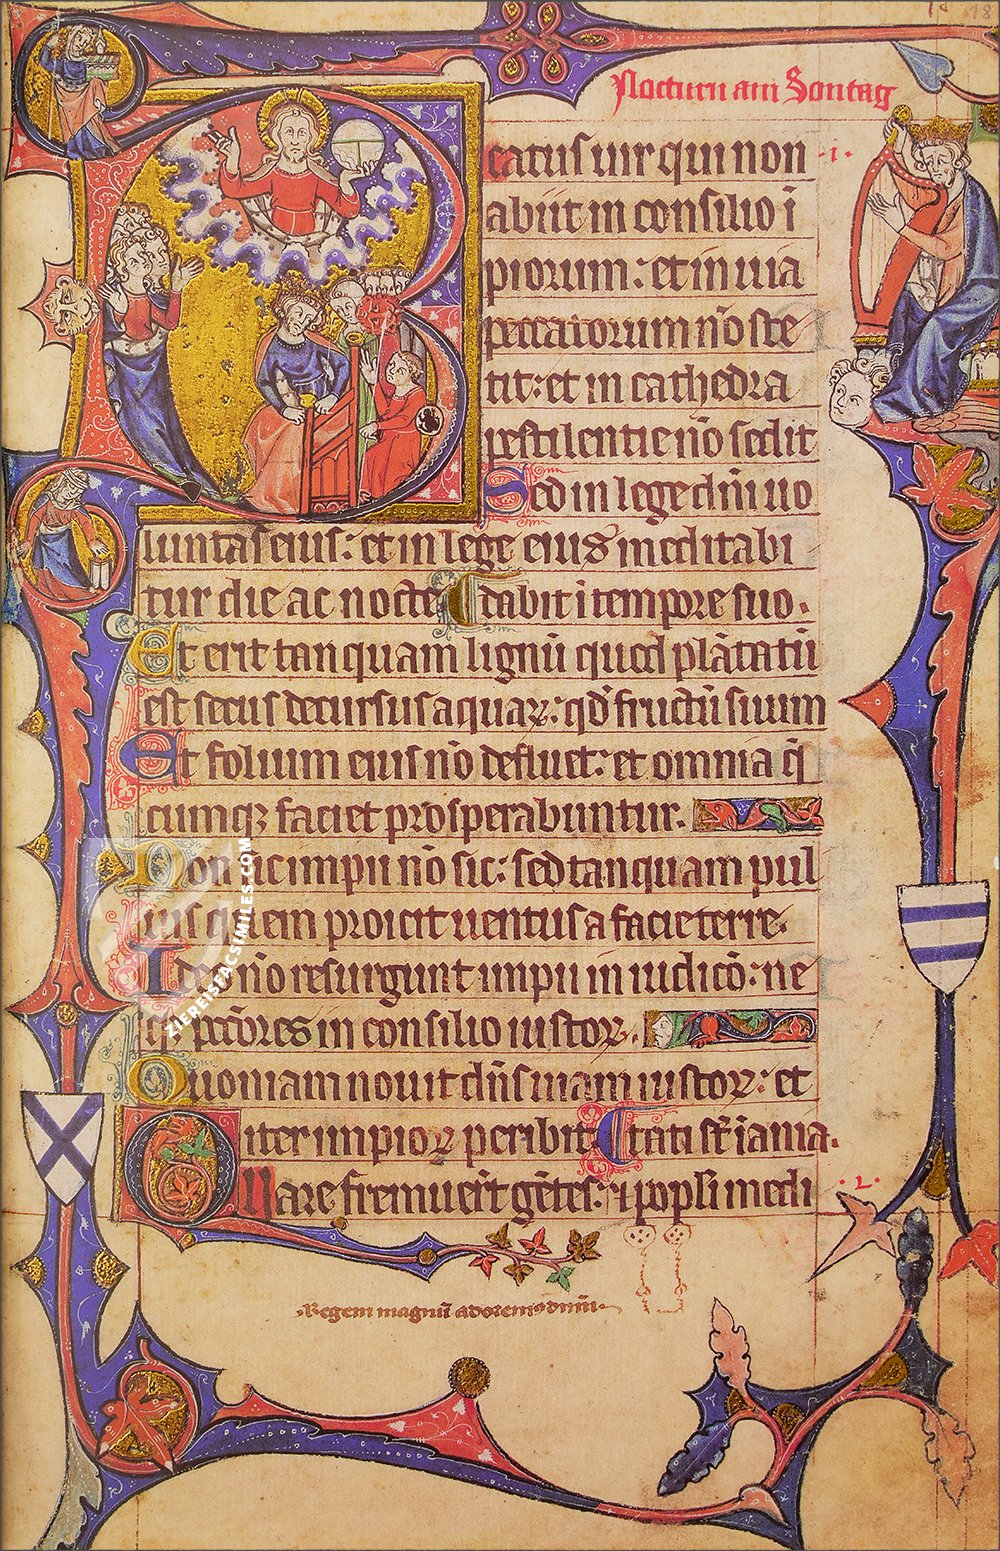 Nocturn am Sontag
Beatus uir qui non .i.
abiit in consilio ī
piorum: et in uia
peccatorum nō ste
tit: et in cathedra
pestilentie nō sedit
Sed in lege dnī uo
luntas eius: et in lege eius meditabi
tur die ac nocte dabit ī tempore suo.
Et erit tanquam lignū quod plātatū
est secus decursus aquaꝝ: qd̄ fructū suum
Et folium eius nō defluet: et omnia q̄
cumqꝫ faciet prosperabuntur.
Non sic impii nō sic: sed tanquam pul
uis quem proicit uentus a facie terre.
Ideo nō resurgunt impii in iudicō: ne
qꝫ pctōres in consilio iustoꝝ.
Quoniam nouit dn̄s uiam iustoꝝ: et
iter impioꝝ peribit
Quare fremuert̄ gētes: ⁊ popli medi .2.
Regem magnū adoremꝰ dnm̄
ZIEREISFACSIMILES.COM
18